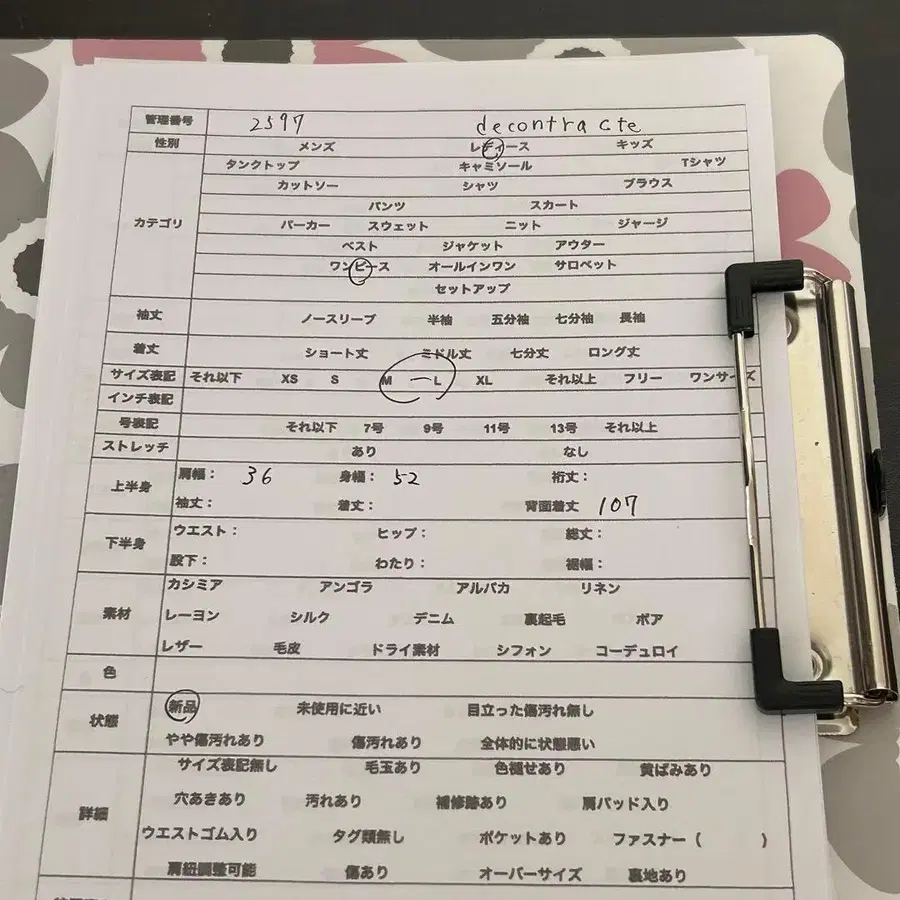 管理番号 2597 decontracte
性別 メンズ レディース キッズ
タンクトップ キャミソール Tシャツ
カットソー シャツ ブラウス
パンツ スカート
カテゴリ パーカー スウェット ニット ジャージ
ベスト ジャケット アウター
ワンピース オールインワン サロペット
セットアップ
袖丈 ノースリーブ 半袖 五分袖 七分袖 長袖
着丈 ショート丈 ミドル丈 七分丈 ロング丈
サイズ表記 それ以下 XS S M ー L XL それ以上 フリー ワンサイズ
インチ表記
号表記 それ以下 7号 9号 11号 13号 それ以上
ストレッチ あり なし
上半身 肩幅: 36 身幅: 52 裄丈:
袖丈: 着丈: 背面着丈 107
下半身 ウエスト: ヒップ: 総丈:
股下: わたり: 裾幅:
カシミア アンゴラ アルパカ リネン
素材 レーヨン シルク デニム 裏起毛 ボア
レザー 毛皮 ドライ素材 シフォン コーデュロイ
色
状態 新品 未使用に近い 目立った傷汚れ無し
やや傷汚れあり 傷汚れあり 全体的に状態悪い
サイズ表記無し 毛玉あり 色褪せあり 黄ばみあり
詳細 穴あきあり 汚れあり 補修跡あり 肩パッド入り
ウエストゴム入り タグ類無し ポケットあり ファスナー( )
肩紐調整可能 傷あり オーバーサイズ 裏地あり